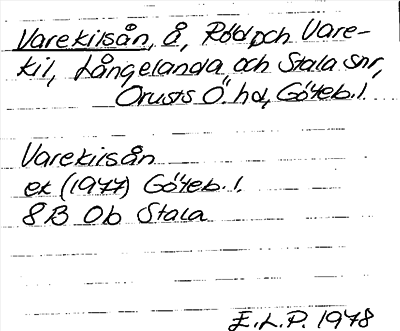 Varekilsån, å, Röd och Vare-
kil, Långelanda och Stala snr,
Orusts Ö. hd, Göteb. l.
Varekilsån
ek (1977) Göteb. l.
8B Ob Stala
E.L.P. 1978